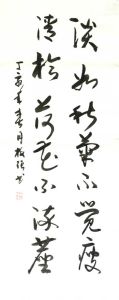 淡如秋菊不觉瘦
清於荷花不染塵
丁亥年春月
书